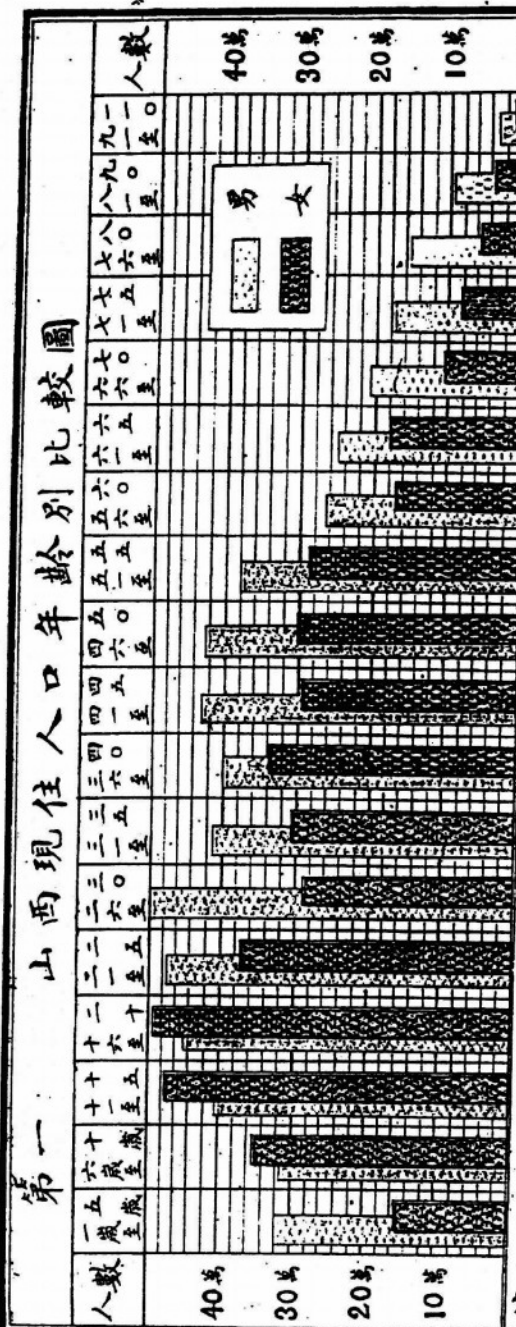 第一 山西現住人口年齡別比較圖
人數
一歲至五歲
六歲至十歲
十一至十五
十六至二十
二一至二五
二六至三〇
三一至三五
三六至四〇
四一至四五
四六至五〇
五一至五五
五六至六〇
六一至六五
六六至七〇
七一至七五
七六至八〇
八一至九〇
九一至一一〇
人數
40萬
30萬
20萬
10萬
男
女
40萬
30萬
20萬
10萬